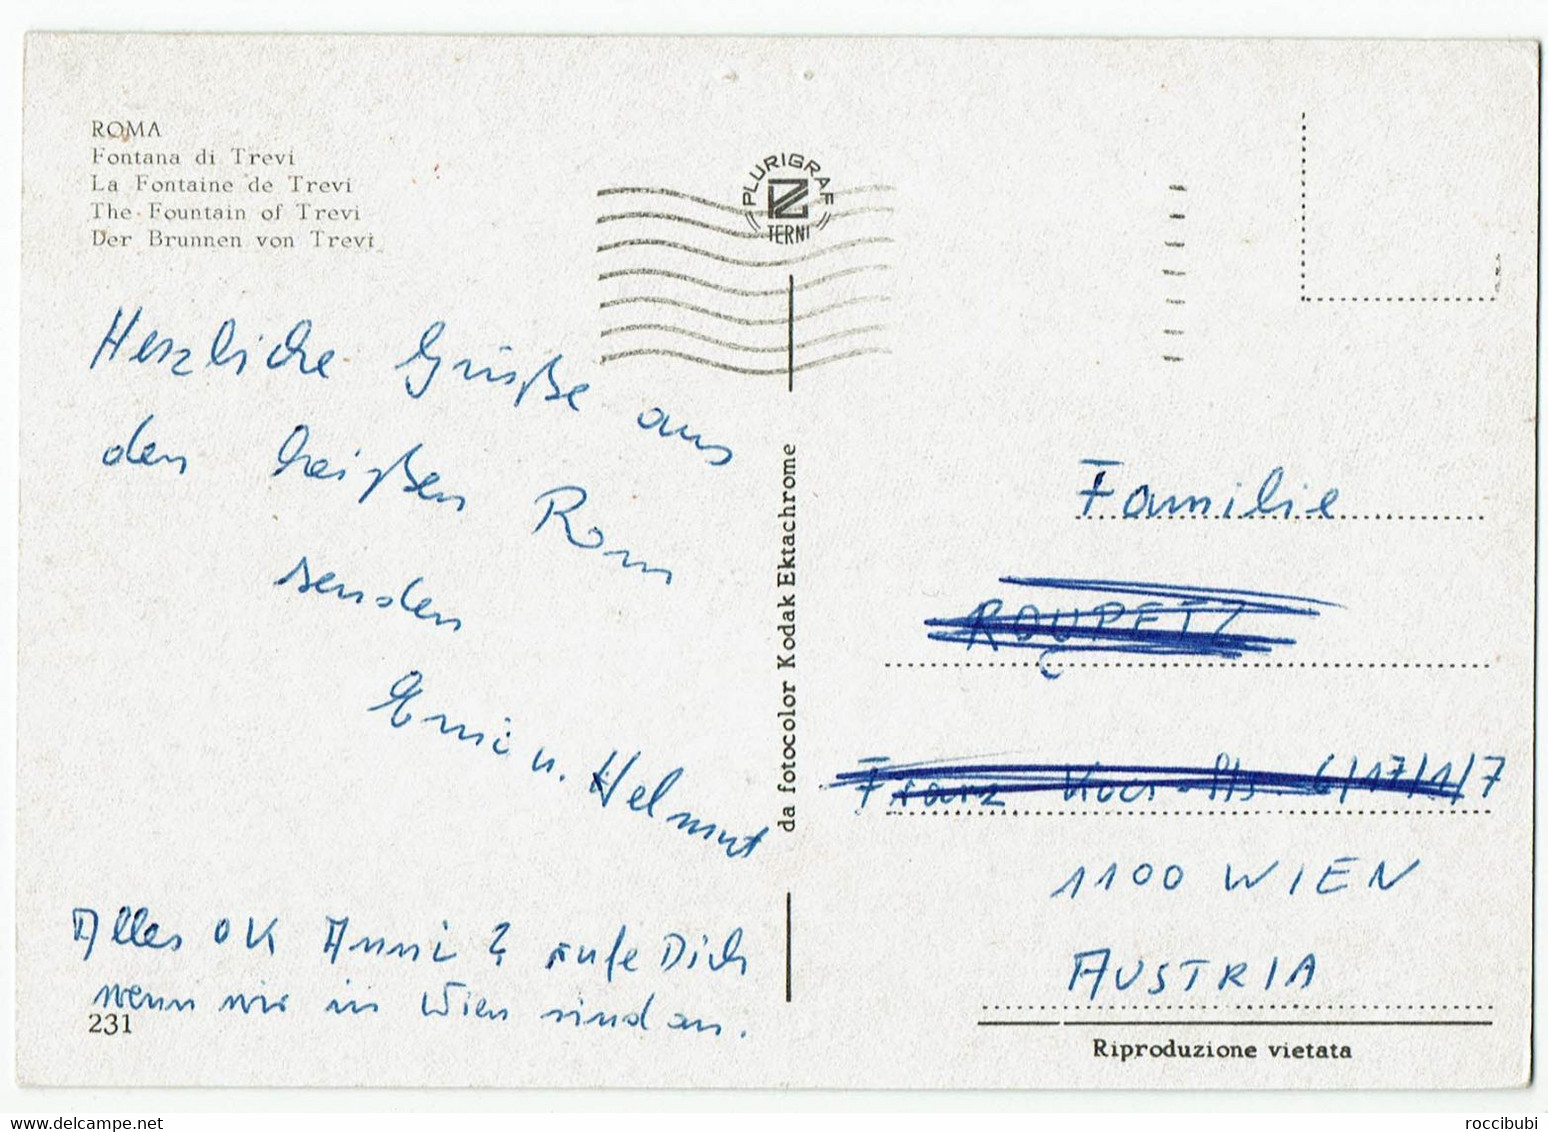 ROMA
Fontana di Trevi
La Fontaine de Trevi
The Fountain of Trevi
Der Brunnen von Trevi
PLURIGRAF
TERNI
Herzliche Grüße aus
den heißen Rom
senden
Erni u. Helmut
Alles OK Anni? rufe Dich
wenn wir in Wien sind an.
231
da fotocolor Kodak Ektachrome
Familie
1100 WIEN
AUSTRIA
Riproduzione vietata
roccibubi